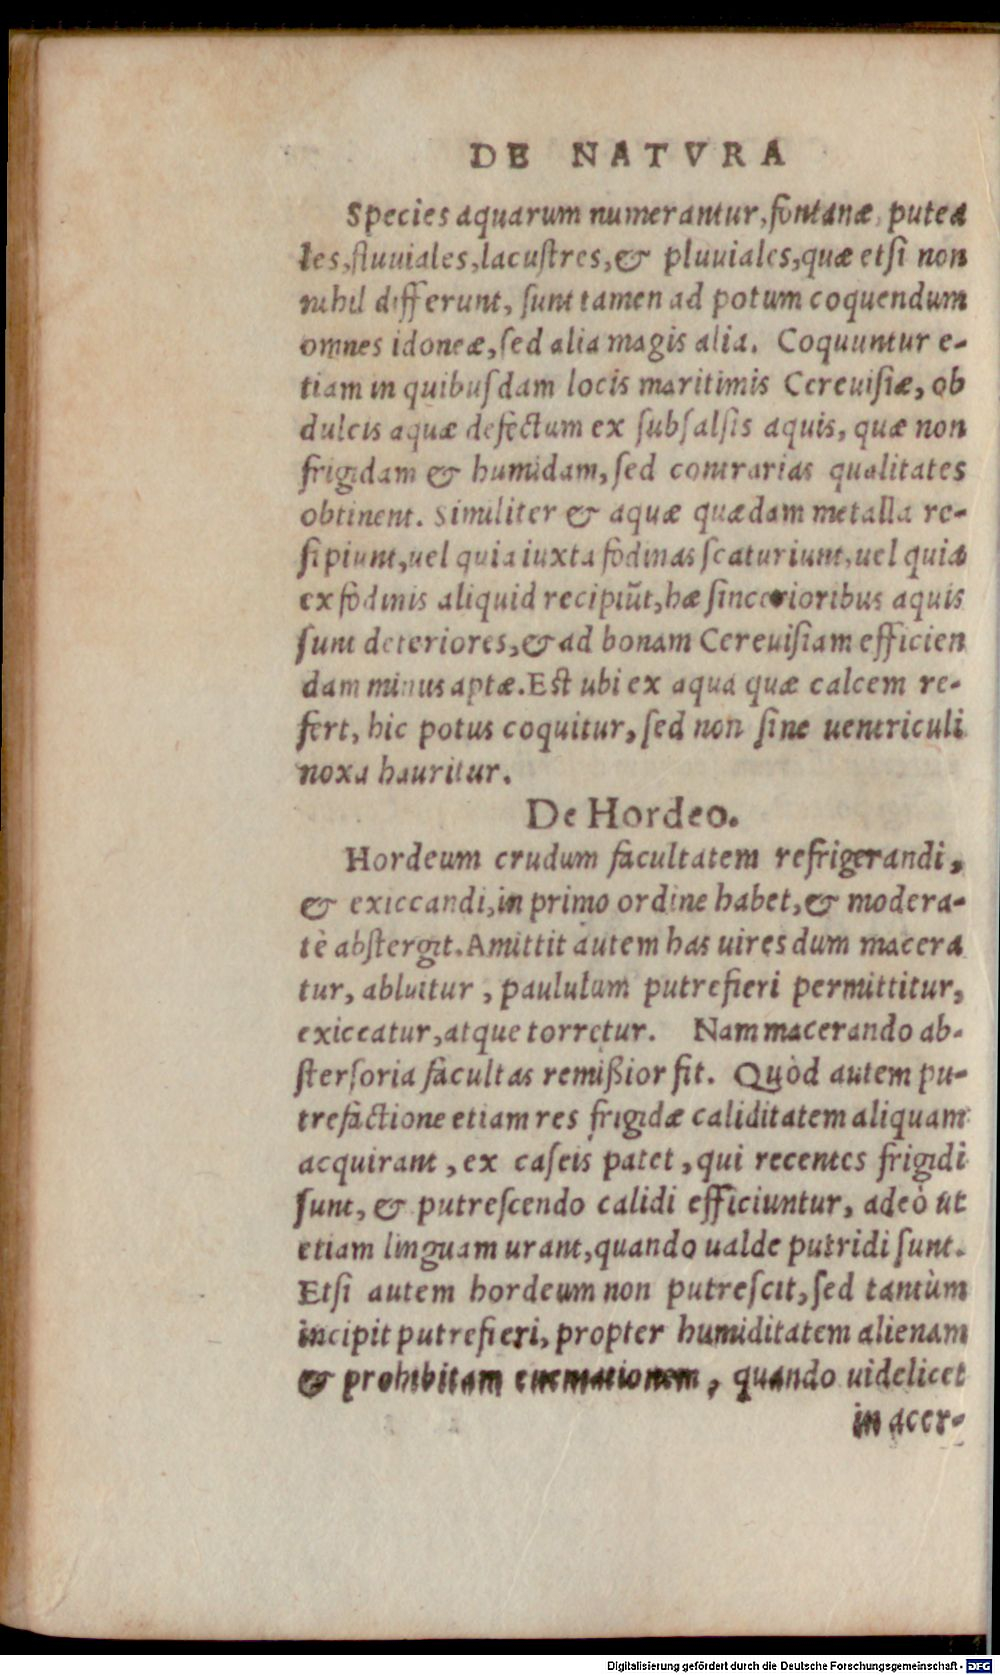 DE NATVRA
Species aquarum numerantur, fontanæ, putea
les, fluuiales, lacustres, & pluuiales, quæ etsi non
nihil differunt, sunt tamen ad potum coquendum
omnes idoneæ, sed alia magis alia. Coquuntur e-
tiam in quibusdam locis maritimis Cereuisiæ, ob
dulcis aquæ defectum ex subsalsis aquis, quæ non
frigidam & humidam, sed contrarias qualitates
obtinent. Similiter & aquæ quædam metalla re-
sipiunt, uel quia iuxta fodinas scaturiunt, uel quia
ex fodinis aliquid recipiũt, hæ sincerioribus aquis
sunt deteriores, & ad bonam Cereuisiam efficien
dam minus aptæ. Est ubi ex aqua quæ calcem re-
fert, hic potus coquitur, sed non sine uentriculi
noxa hauritur.
De Hordeo.
Hordeum crudum facultatem refrigerandi,
& exiccandi, in primo ordine habet, & modera-
tè abstergit. Amittit autem has uires dum macera
tur, abluitur, paululum putrefieri permittitur,
exiccatur, atque torretur. Nam macerando ab-
stersoria facultas remißior fit. Quòd autem pu-
trefactione etiam res frigidæ caliditatem aliquam
acquirant, ex caseis patet, qui recentes frigidi
sunt, & putrescendo calidi efficiuntur, adeò ut
etiam linguam urant, quando ualde putridi sunt.
Etsi autem hordeum non putrescit, sed tantùm
incipit putrefieri, propter humiditatem alienam
& prohibitam , quando uidelicet
in acer-
Digitalisierung gefördert durch die Deutsche Forschungsgemeinschaft - DFG